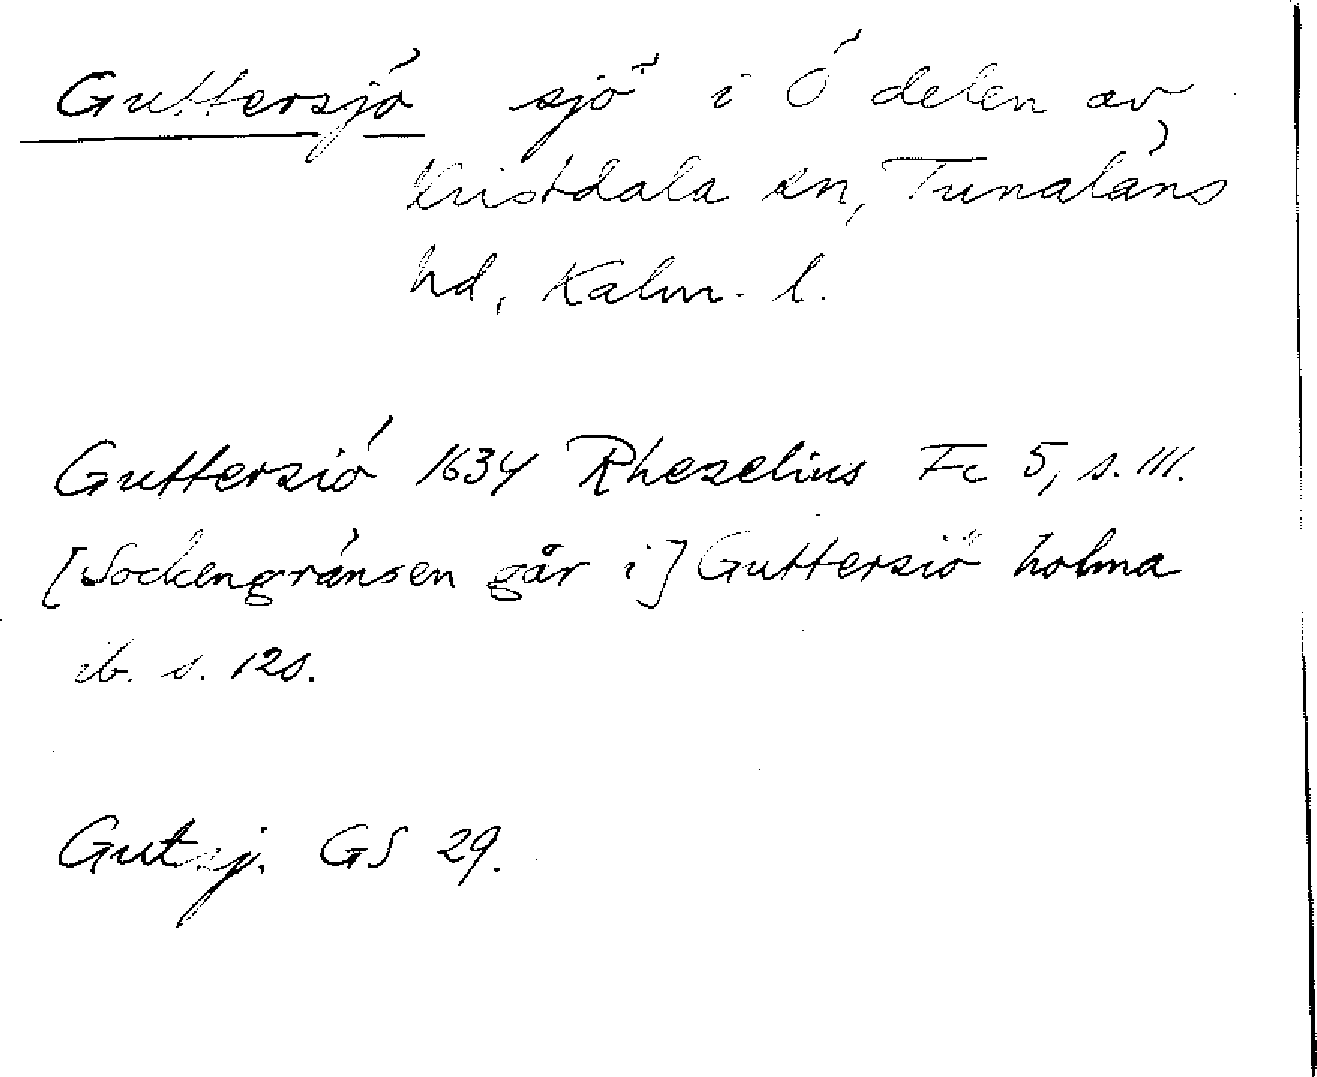 Guttersjö sjö i Ö delen av
Kristdala sn, Tunaläns
hd, Kalm. l.
Guttersiö 1634 Rhezelius Fc 5, s. 111.
[Sockengränsen går i] Guttersiö holma
ib. s. 120.
Gutsj. GS 29.